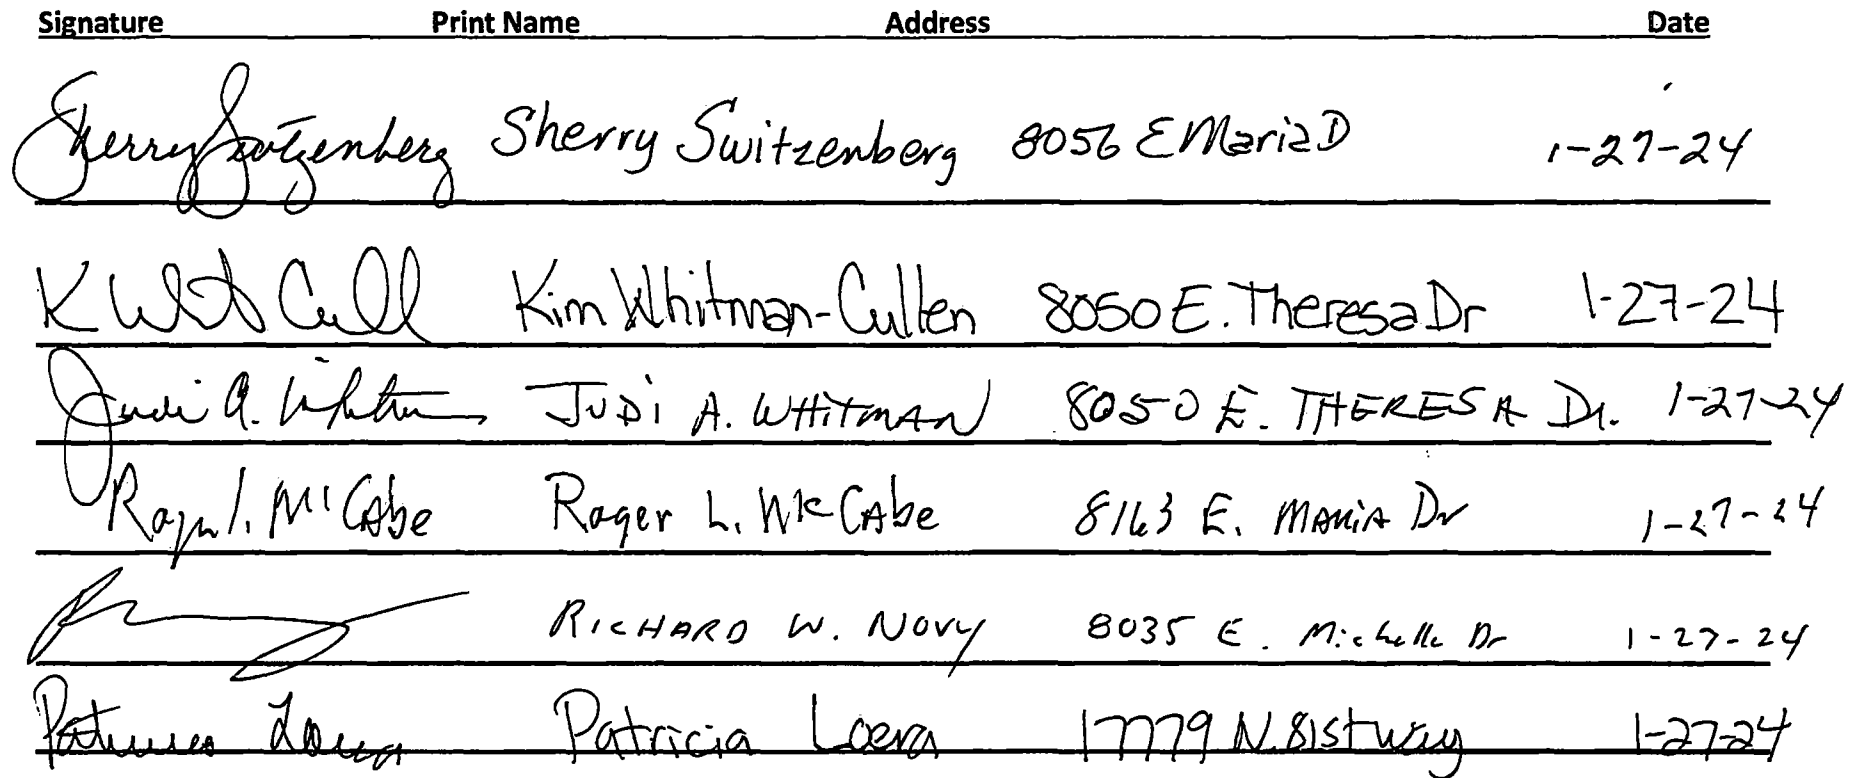 Signature Print Name Address Date
Sherry Switzenberg Sherry Switzenberg 8056 E Maria D 1-27-24
K Whit Cull Kim Whitman-Cullen 8050 E. Theresa Dr 1-27-24
Judi A. Whitman JUDi A. WHiTMAN 8050 E. THERESA Dr. 1-27-24
Roger L. McCabe Roger L. McCabe 8163 E. MARiA Dr 1-27-24
RICHARD W. NOVY 8035 E. Michelle Dr 1-27-24
Patricia Loera Patricia Loera 17779 N. 81st way 1-27-24